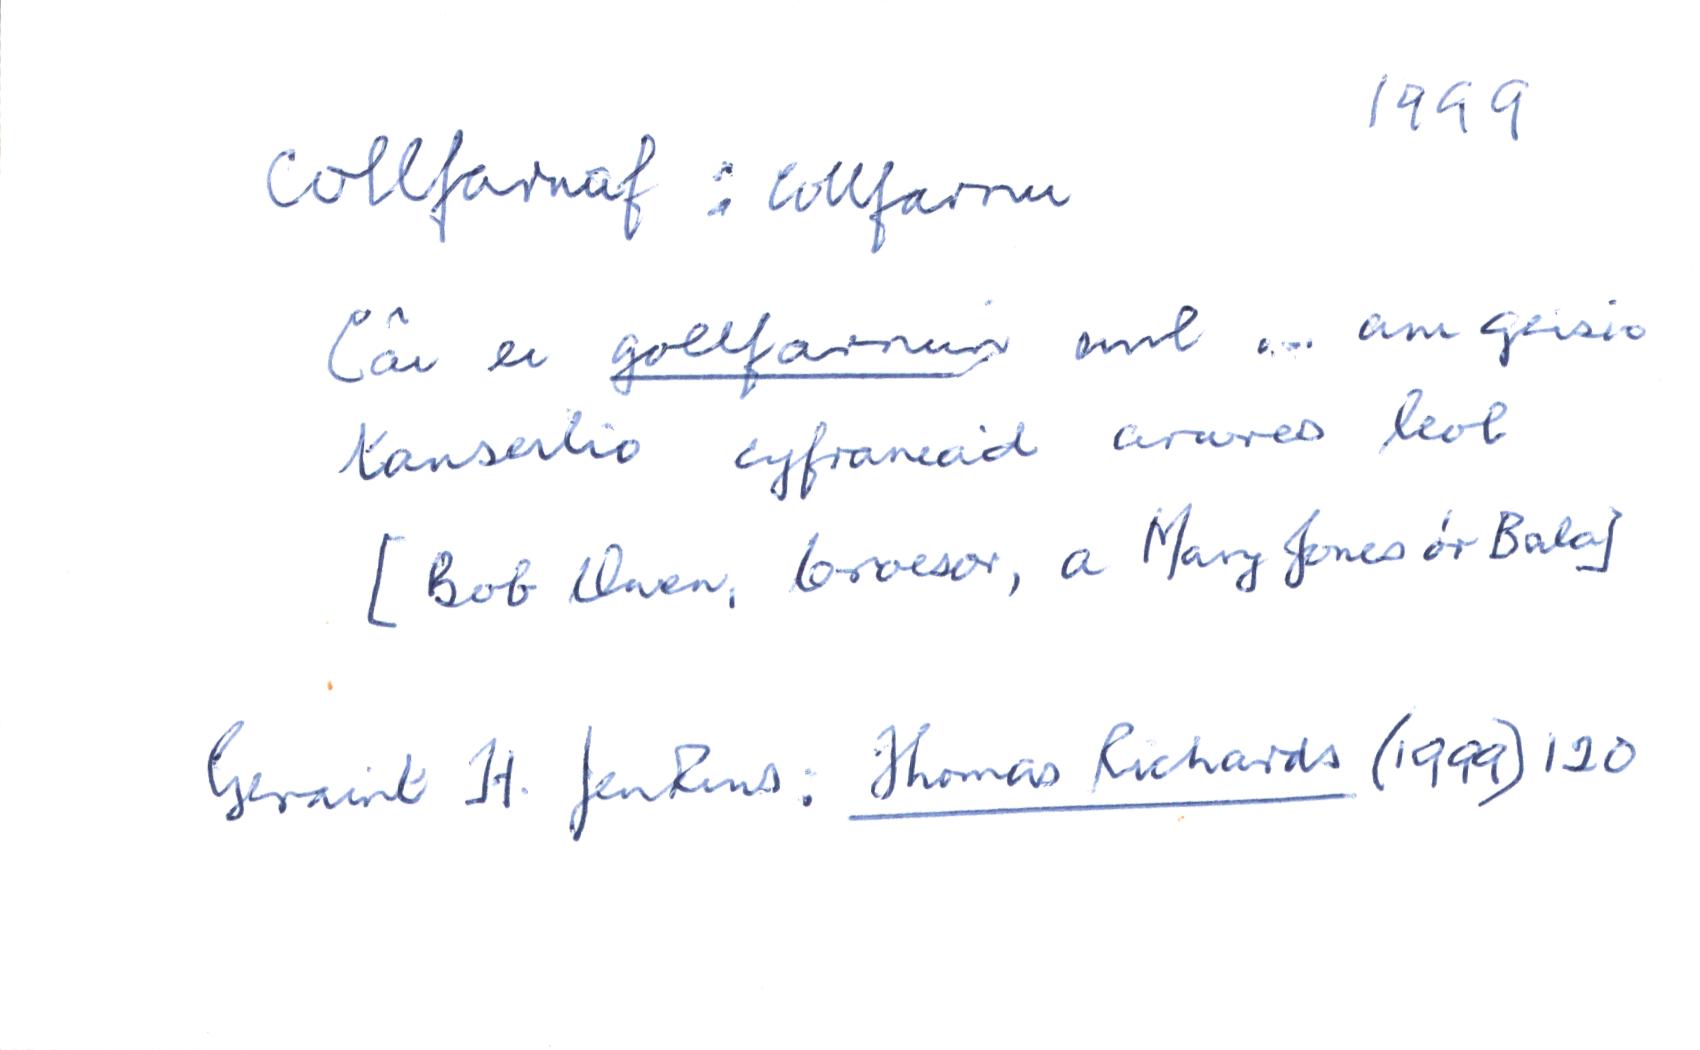 1999
Collfarnaf : collfarnu
Câi ei gollfarnu am geisio
Kanseilio cyfraniad arwres leol
[Bob Owen, Croesor, a Mary Jones o'r Bala]
Geraint H. Jenkins: Thomas Richards (1999) 120